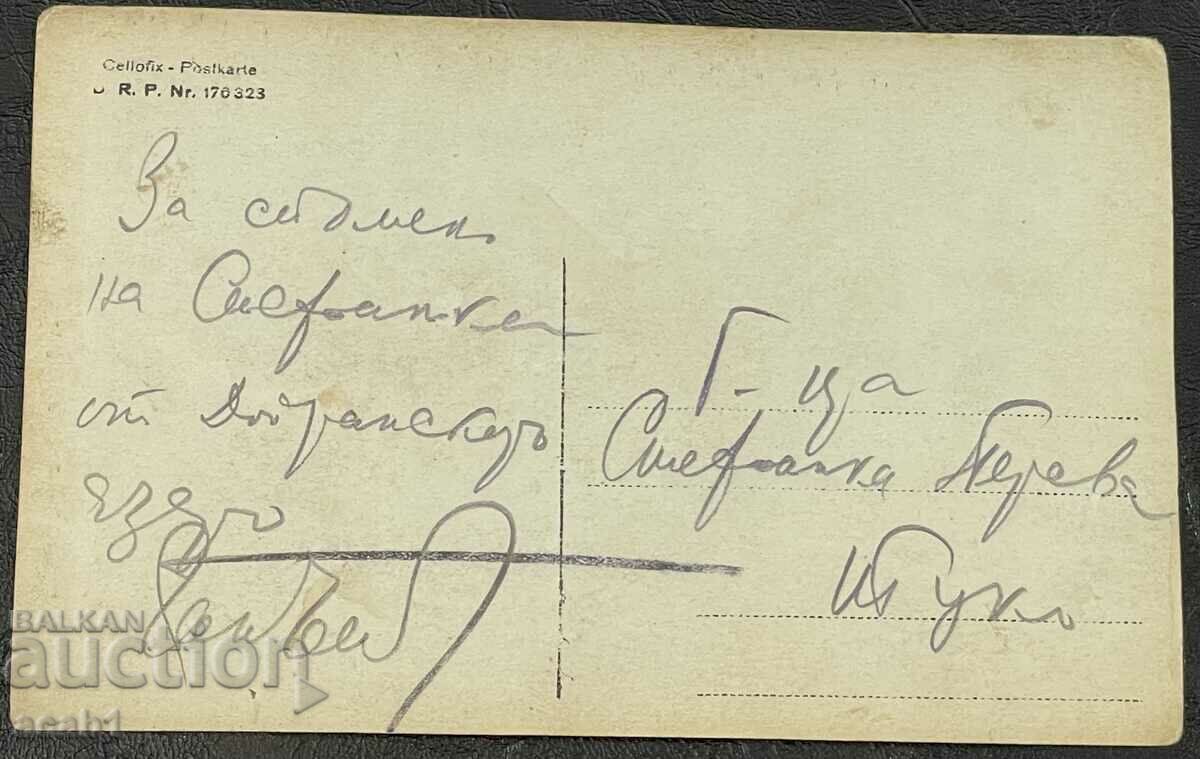 Cellofix - Postkarte
D R. P. Nr. 176323
За спомен
на Стефанка
от Дойрански
езеро
Г-ца
Стефанка
Тукъ
BALKAN
auction
acab1